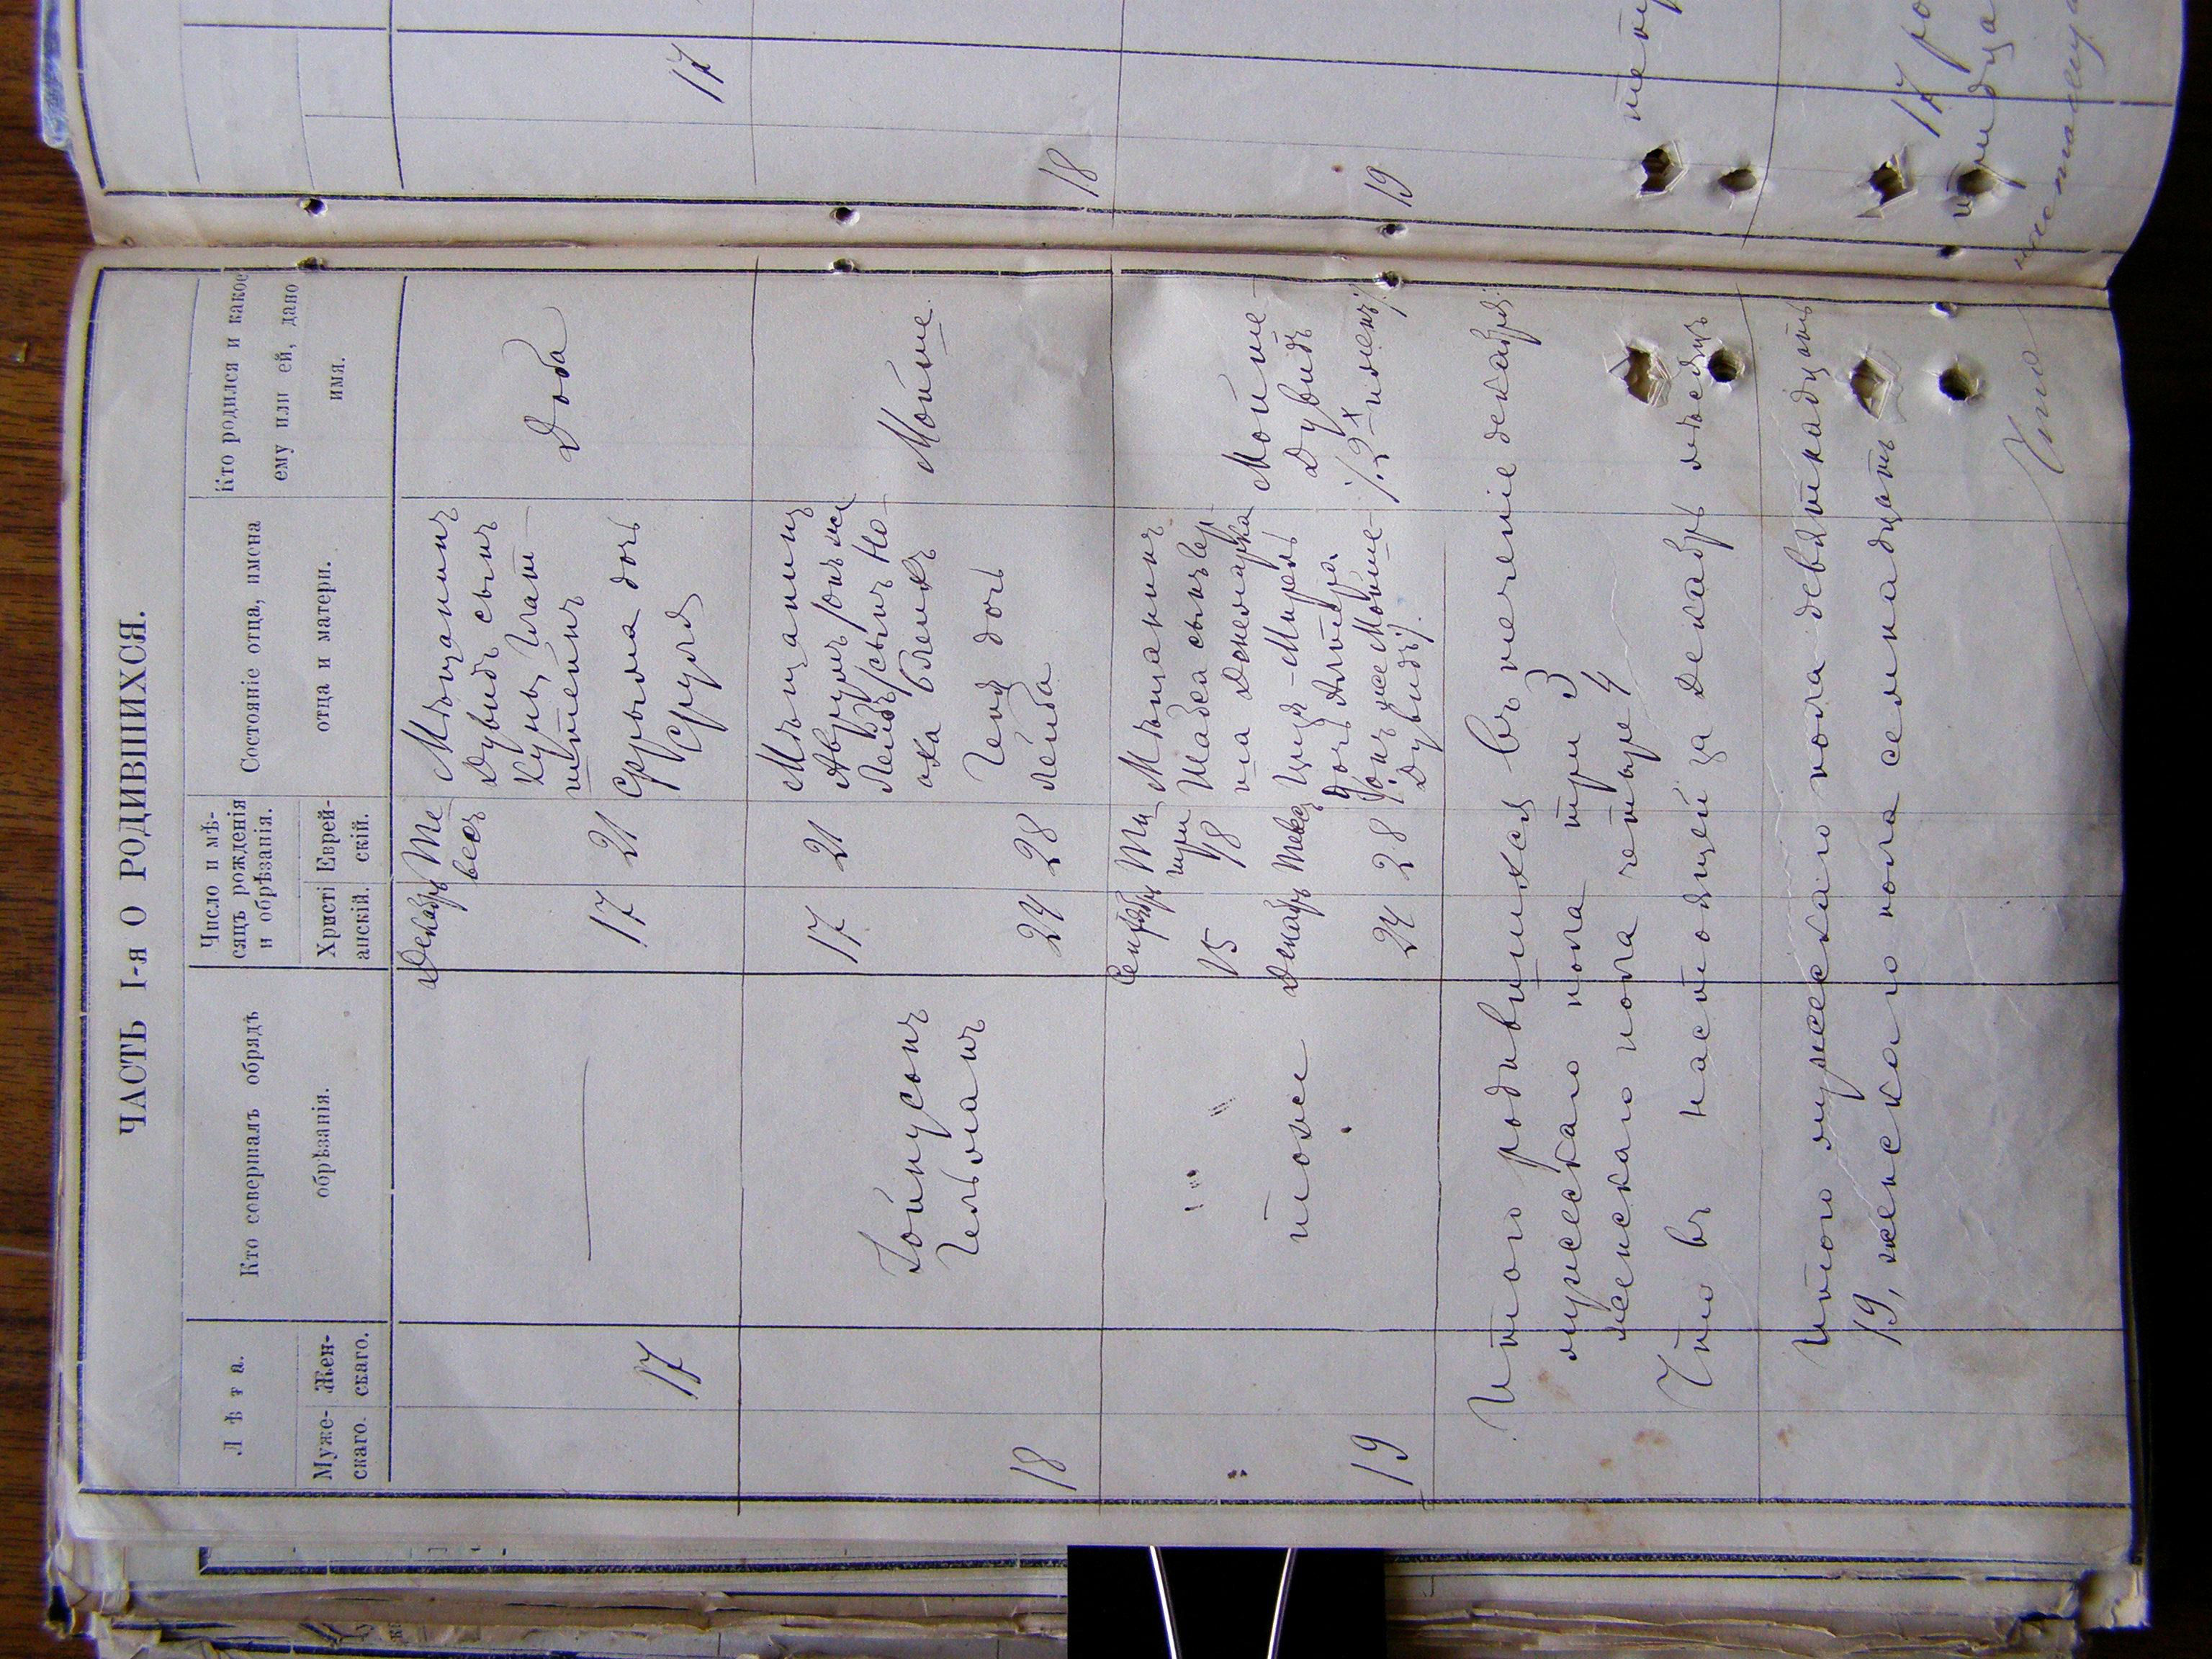 ЧАСТЬ I-я О РОДИВШИХСЯ.
Лѣта.
Муже-
скаго.
Жен-
скаго.
Кто совершалъ обрядъ
обрѣзанія.
Число и мѣ-
сяцъ рожденія
и обрѣзанія.
Христі
анскій.
Еврей-
скій.
Состояніе отца, имена
отца и матери.
Кто родился и какое
ему или ей, дано
имя.
17
Декабрь
17
Те
весъ
21
Мѣщанинъ
Дувидъ сынъ
штейнъ
Фрыма дочь
Сруля
Доба
18
Гельманъ
17
24
21
28
Мѣщанинъ
Аврумъ /онъ же
Лейбъ/ сынъ Но-
дочь
Лейба
Мойше.
19
тоже
Сентябрь
15
Декабрь
24
Ти
шри
18
Тевесъ
28
Мѣщанинъ
Шабса сынъ Гер-
Дочь Алтера
/онъ же Мойше-
Дувидъ/.
Мойше-
Дувидъ
/.2х именъ/.
Итого родившихся въ теченіе декабря:
мужескаго пола три 3
женскаго пола четыре 4
Что въ настоящей за Декабрь мѣсяцъ
Итого мужескаго пола девятнадцать
19, женскаго пола семнадцать
Что
17
18
19
17